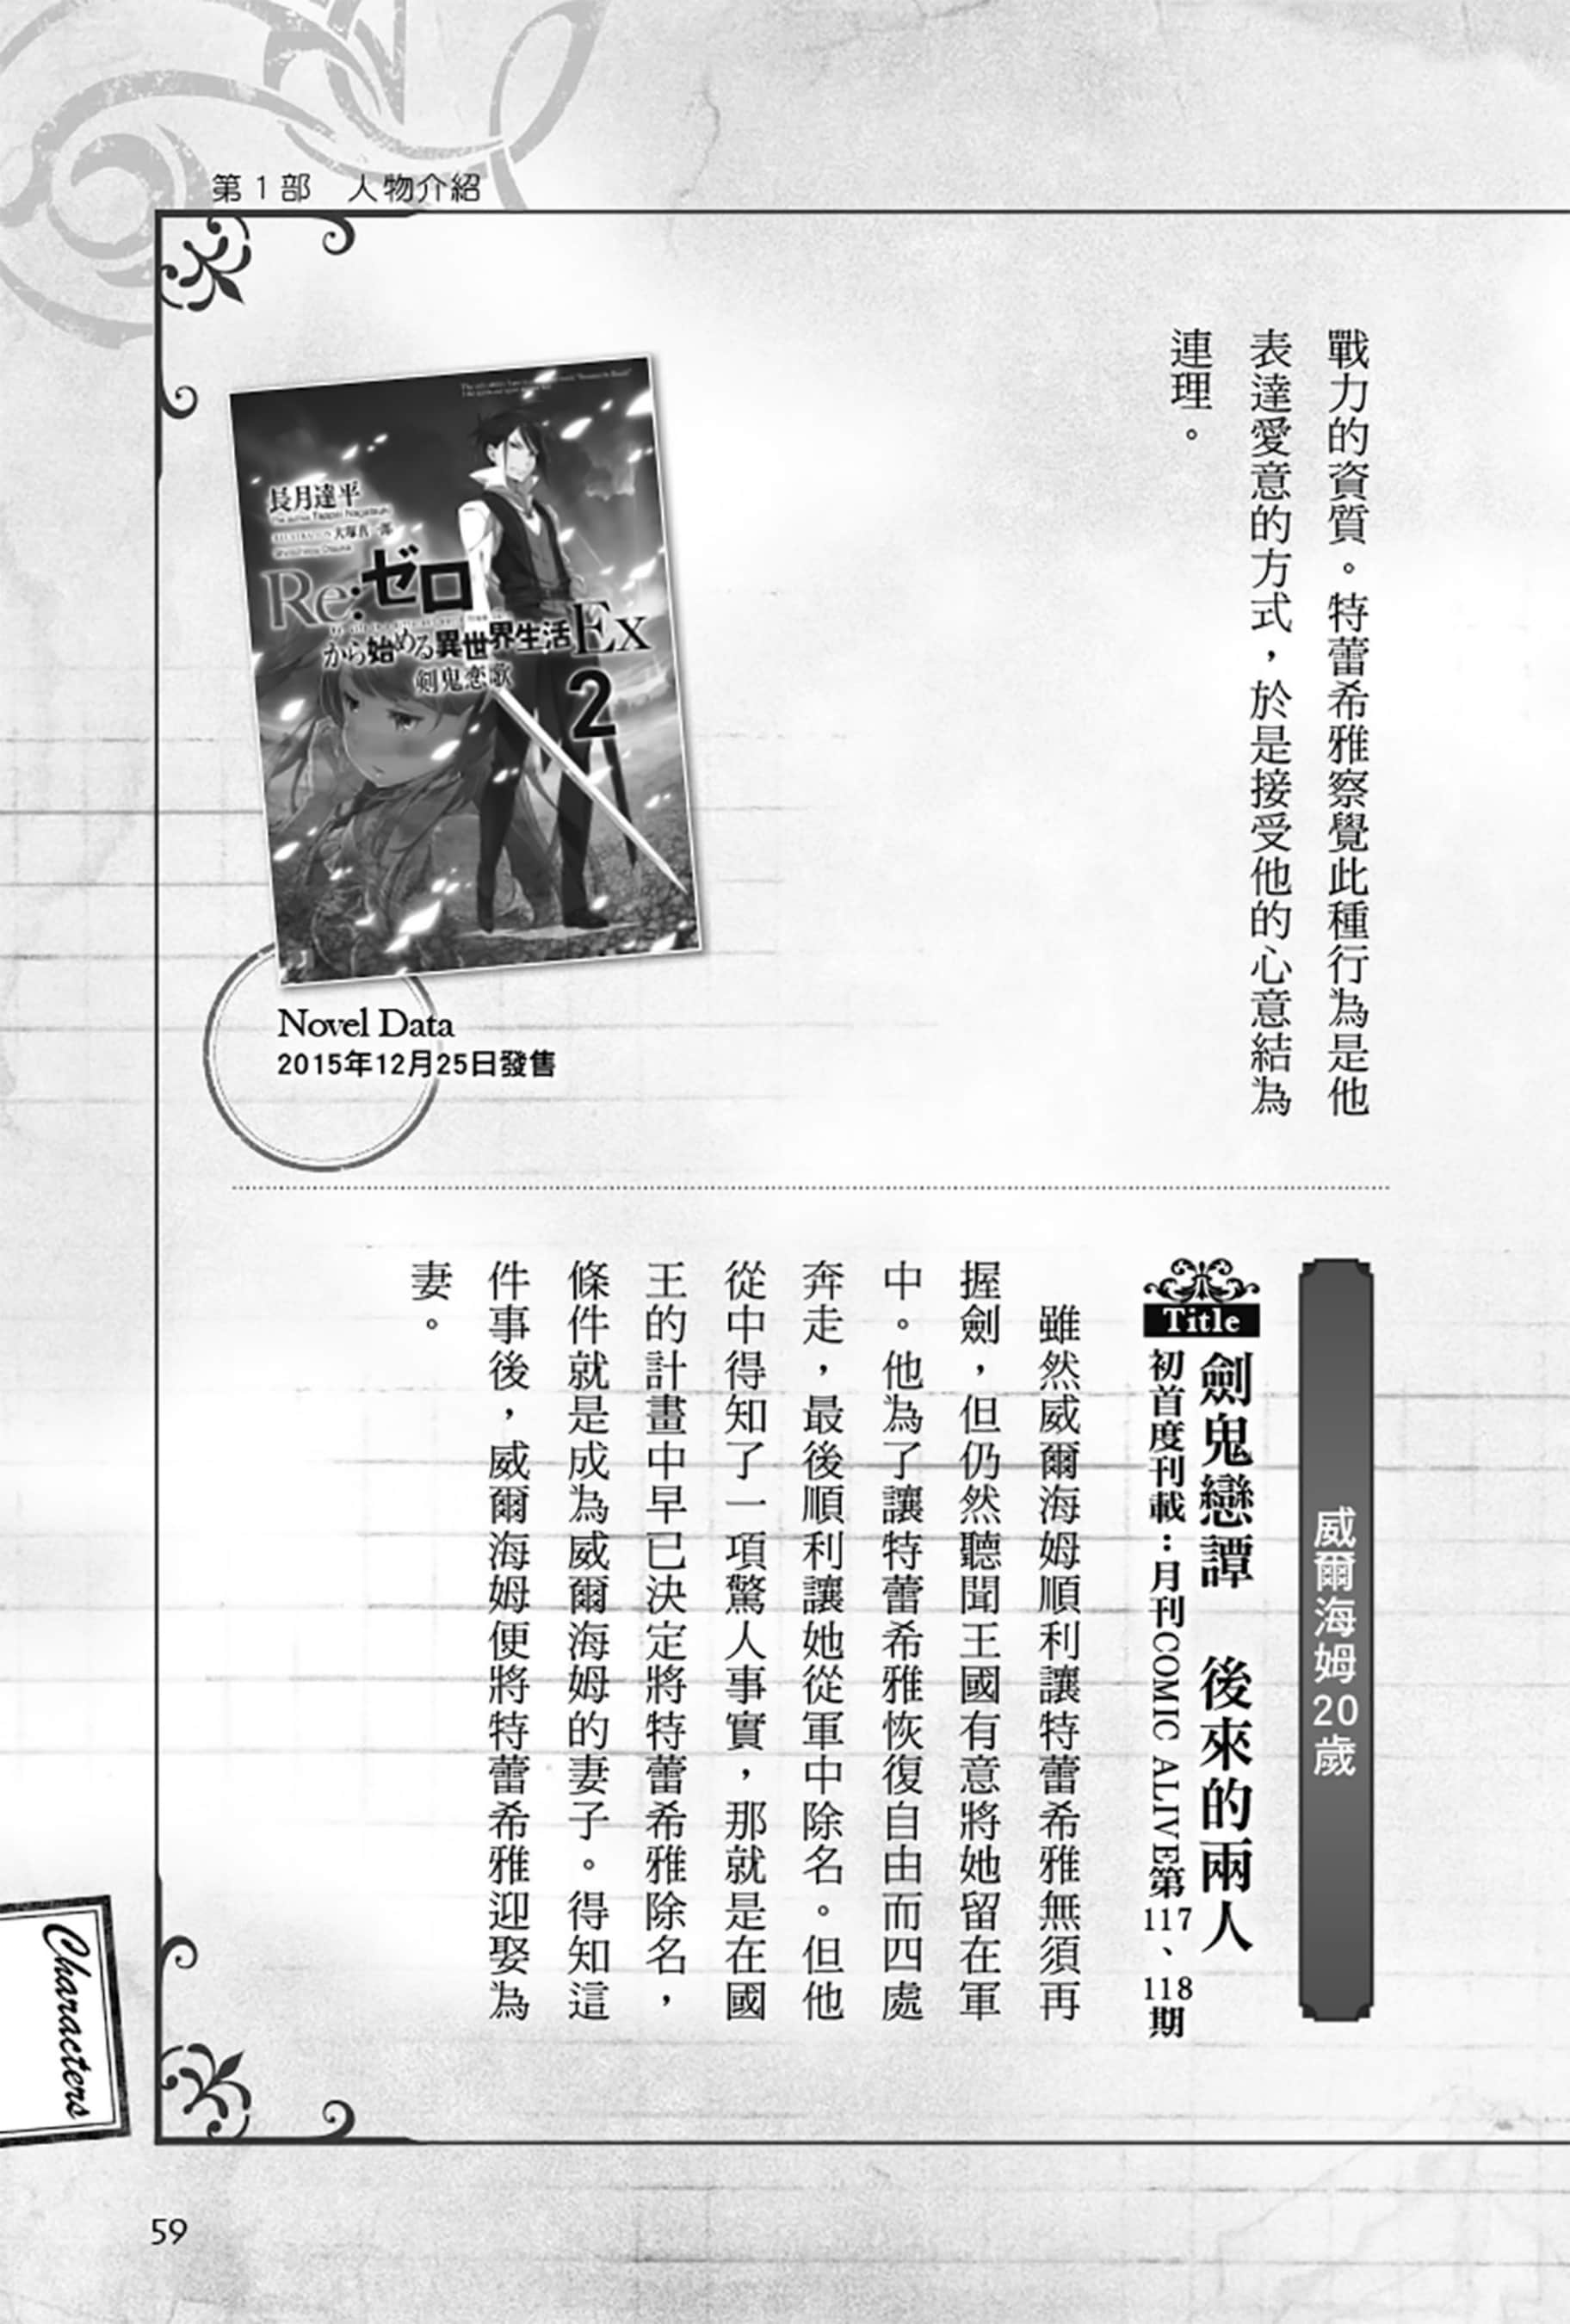 第1部　人物介紹
戰力的資質。特蕾希雅察覺此種行為是他
表達愛意的方式，於是接受他的心意結為
連理。
長月達平
Tappei Nagatsuki
ILLUSTRATION 大塚真一郎
Shinichirou Otsuka
Re:ゼロ
から始める異世界生活Ex
2
剣鬼恋歌
Novel Data
2015年12月25日發售
威爾海姆20歲
Title
劍鬼戀譚　後來的兩人
初首度刊載：月刊COMIC ALIVE第117、118期
雖然威爾海姆順利讓特蕾希雅無須再
握劍，但仍然聽聞王國有意將她留在軍
中。他為了讓特蕾希雅恢復自由而四處
奔走，最後順利讓她從軍中除名。但他
從中得知了一項驚人事實，那就是在國
王的計畫中早已決定將特蕾希雅除名，
條件就是成為威爾海姆的妻子。得知這
件事後，威爾海姆便將特蕾希雅迎娶為
妻。
Characters
59